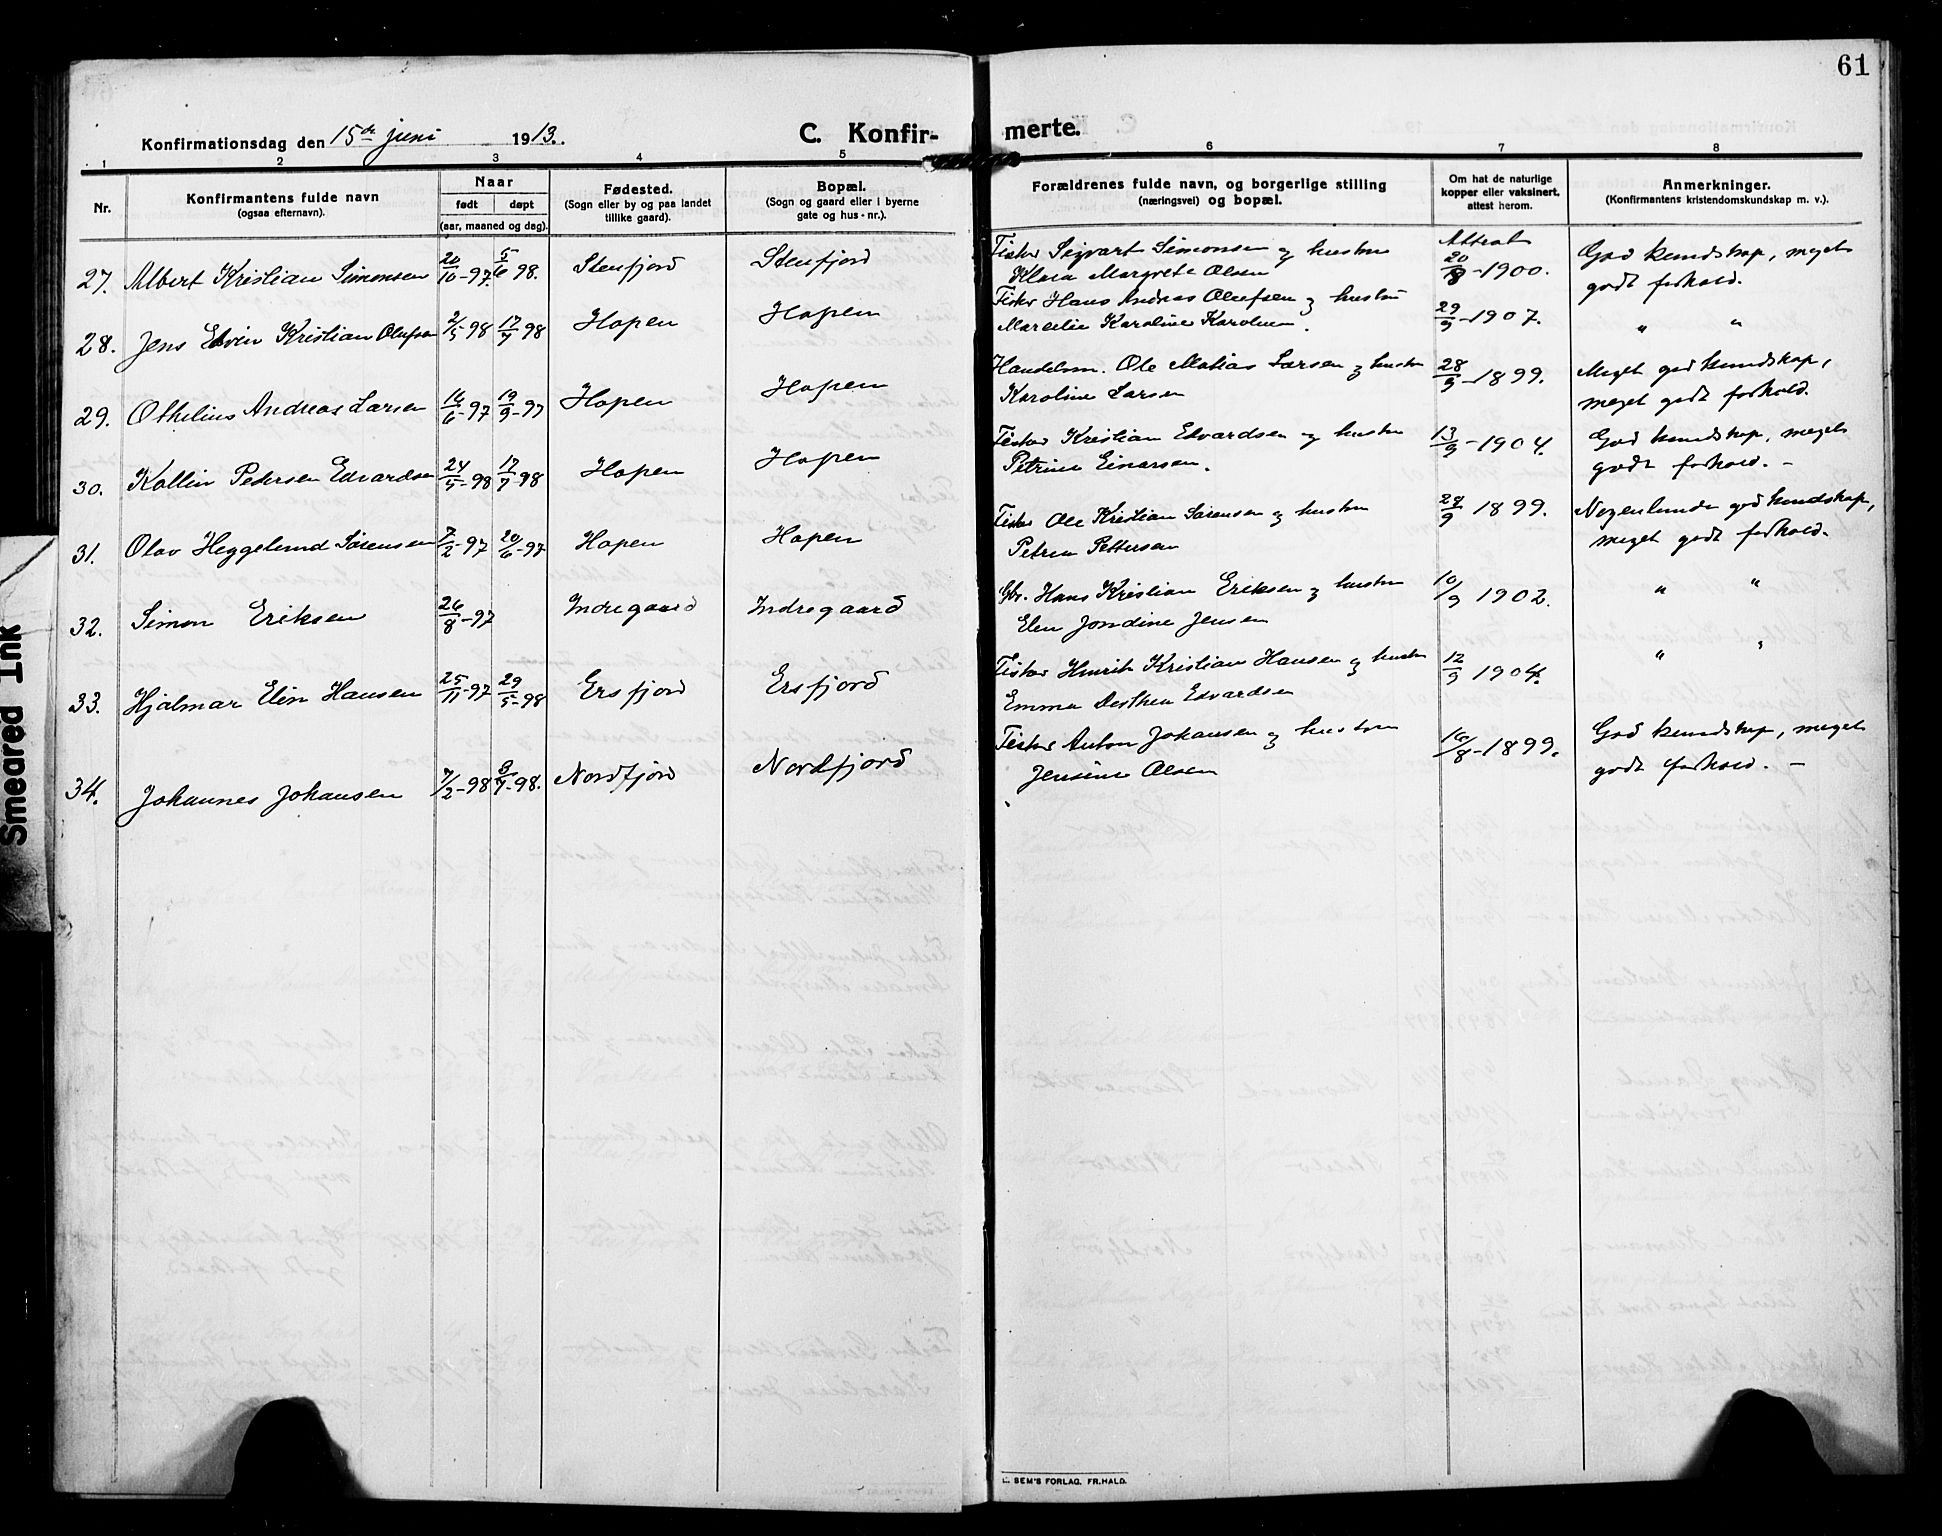 61
Konfirmationsdag den 15de juni 1913.
C. Konfirmerte.
1 2 3 4 5 6 7 8
Nr.
Konfirmantens fulde navn
(ogsaa efternavn).
Naar
født døpt
(aar, maaned og dag).
Fødested.
(Sogn eller by og paa landet
tillike gaard).
Bopæl.
(Sogn og gaard eller i byerne
gate og hus-nr.).
Forældrenes fulde navn, og borgerlige stilling
(næringsvei) og bopæl.
Om hat de naturlige
kopper eller vaksinert,
attest herom.
Anmerkninger.
(Konfirmantens kristendomskundskap m. v.).
27. Albert Kristian Simonsen 20/10-97. 5/6 98. Stenfjord Stenfjord Fisker Sigvart Simonsen og hustru Attest God kundskap, meget
Klara Margrete Olsen 20/8-1900. godt forhold.
28. Jens Edvin Kristian Olufsen 2/5-98 17/7 98 Hopen Hopen Fisker Hans Andreas Olufsen og hustru 29/9-1907. " "
Marcelie Karoline Karolius.
29. Othelius Andreas Larsen 16/6-97 19/9-97 Hopen Hopen Handelsm. Ole Matias Larsen og hustru 28/9-1899. Meget god kundskap,
Karoline Larsen meget godt forhold.
30. Kollin Pedersen Edvardsen 24/5-98 17/7-98 Hopen Hopen Fisker Kristian Edvardsen og hustru 13/9-1904. God kundskap, meget
Petrine Einarsen. godt forhold. -
31. Olav Heggelund Sørensen 7/2-97 20/6-97 Hopen Hopen Fisker Ole Kristian Sørensen og hustru 28/9 1899. Nogenlunde god kundskap,
Petrea Pettersen meget godt forhold.
32. Simon Eriksen 26/8-97 Indregaard Indregaard Gbr. Hans Kristian Eriksen og hustru 10/9 1902. " "
Elen Jondine Jensen
33. Hjalmar Elin Hansen 25/11-97 29/5-98 Ersfjord Ersfjord Fisker Hinrik Kristian Hansen og hustru 12/9 1904. " "
Emma Dorthea Edvardsen
34. Johannes Johansen 7/2-98 3/7-98. Nordfjord Nordfjord Fisker Anton Johansen og hustru 16/8-1899. God kundskap, meget
Jensine Olsen godt forhold. -
SEM'S FORLAG. FR.HALD.
Smeared Ink